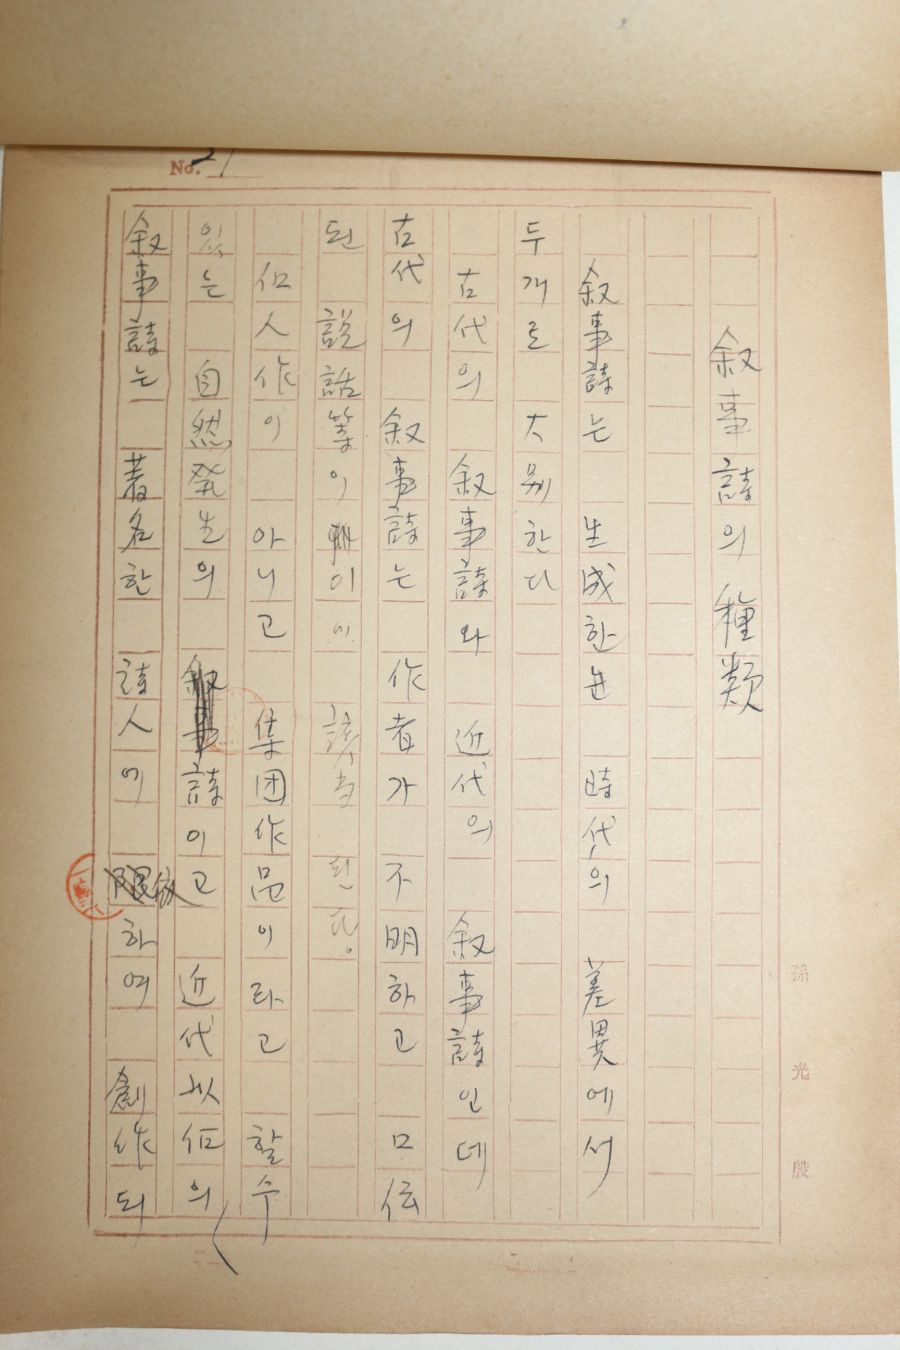 No. 21
叙事詩의 種類
叙事詩는 生成한 時代의 差異에서
두개로 大別한다
古代의 叙事詩와 近代의 叙事詩인데
古代의 叙事詩는 作者가 不明하고 口伝
된 説話等이 이 該当된다.
個人作이 아니고 集団作品이라고 할수
있는 自然発生의 詩이고 近代以後의
叙事詩는 著名한 詩人이 하여 創作되
孫光殷